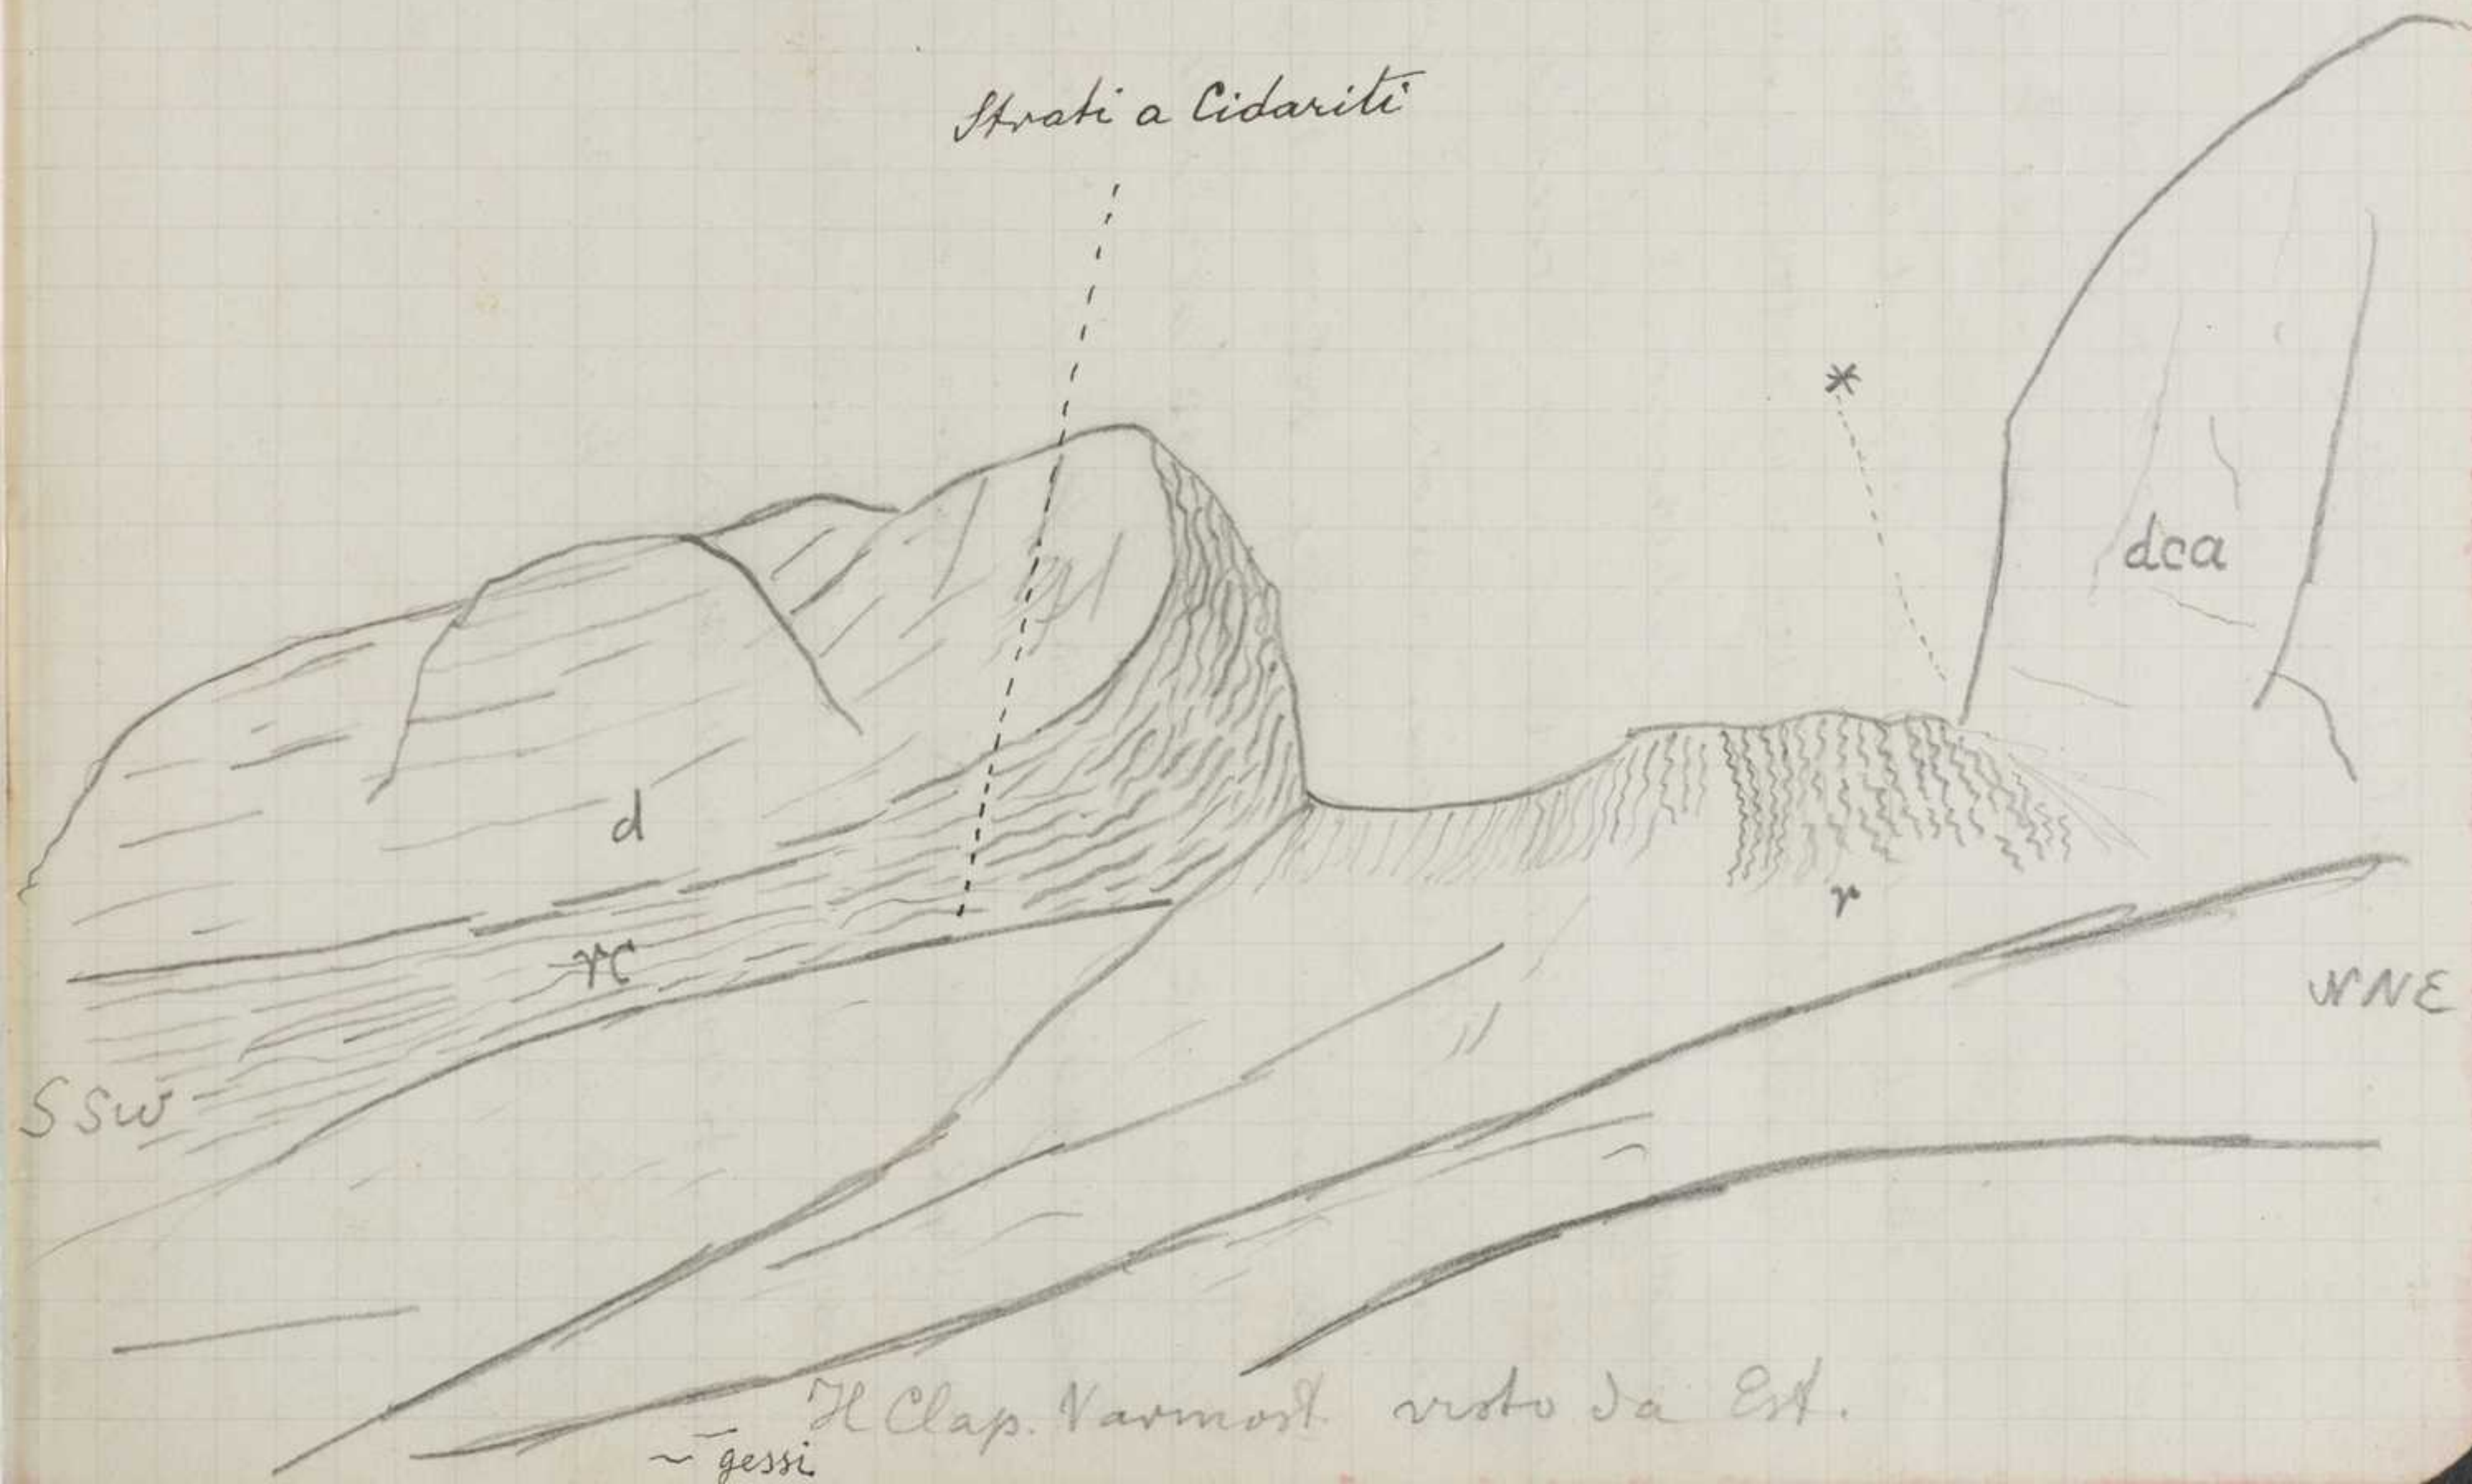 Strati a Cidariti
*
dca
d
r
rc
NNE
SSW
Il Clap. Varmost visto da Est.
~ gessi